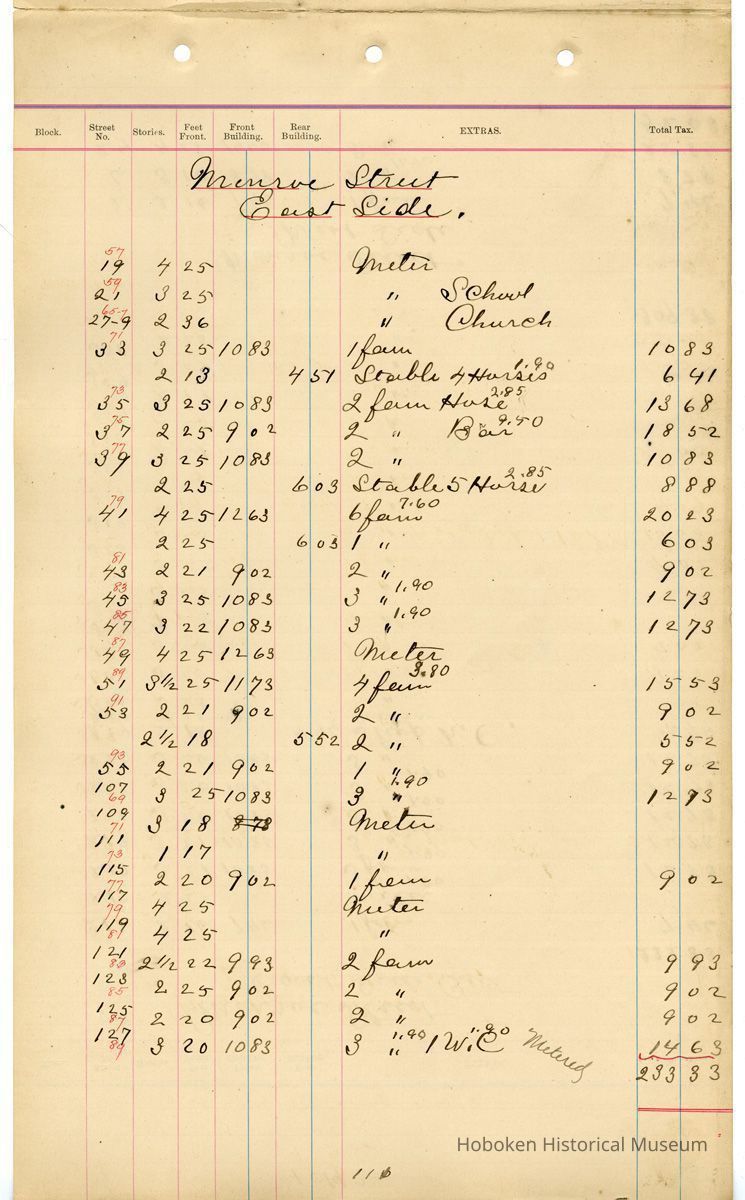 Block. Street No. Stories. Feet Front. Front Building. Rear Building. EXTRAS. Total Tax.
Monroe Street
East Side.
57
19 4 25 Meter
59
21 3 25 " School
65-7
27-9 2 36 " Church
71
33 3 25 10 83 1 fam 10 83
2 13 4 51 Stable 4 Horses 1.90 6 41
73
35 3 25 10 83 2 fam Hose 2.85 13 68
75
37 2 25 9 02 2 " Bar 9.50 18 52
77
39 3 25 10 83 2 " 10 83
2 25 6 03 Stable 5 Horse 2.85 8 88
79
41 4 25 12 63 6 fam 7.60 20 23
2 25 6 03 1 " 6 03
81
43 2 21 9 02 2 " 9 02
83
45 3 25 10 83 3 " 1.90 12 73
85
47 3 22 10 83 3 " 1.90 12 73
87
49 4 25 12 63 Meter
89
51 3 1/2 25 11 73 4 fam 3.80 15 53
91
53 2 21 9 02 2 " 9 02
2 1/2 18 5 52 2 " 5 52
93
55 2 21 9 02 1 " 9 02
107 3 25 10 83 3 " 1.90 12 73
69
109 3 18 Meter
71
111 1 17 "
73
115 2 20 9 02 1 fam 9 02
77
117 4 25 Meter
79
119 4 25 "
81
121 2 1/2 22 9 93 2 fam 9 93
83
123 2 25 9 02 2 " 9 02
85
125 2 20 9 02 2 " 9 02
87
127 3 20 10 83 3 " 1.90 1 W.C 1.90 Metered 14 63
89
233 33
Hoboken Historical Museum
116